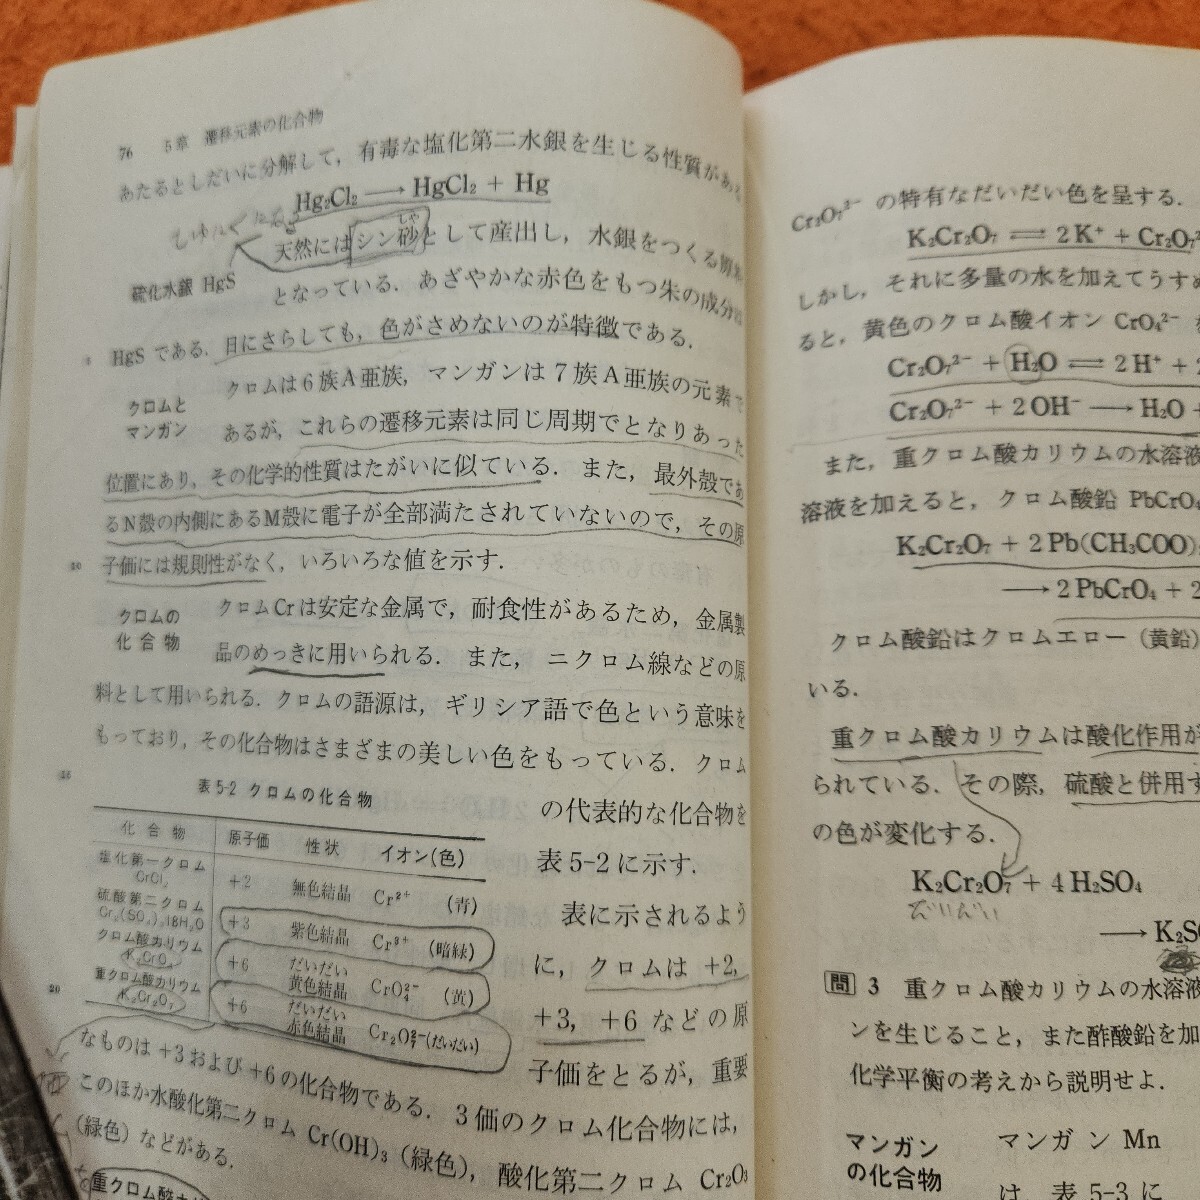 76 5章 遷移元素の化合物
あたるとしだいに分解して，有毒な塩化第二水銀を生じる性質がある
Hg₂Cl₂ ⟶ HgCl₂ + Hg
天然にはシン砂として産出し，水銀をつくる原料
しゃ
硫化水銀 HgS
となっている．あざやかな赤色をもつ朱の成分は
5
HgS である．日にさらしても，色がさめないのが特徴である．
クロムと
マンガン
クロムは6族A亜族，マンガンは7族A亜族の元素で
あるが，これらの遷移元素は同じ周期でとなりあった
位置にあり，その化学的性質はたがいに似ている．また，最外殻であ
るN殻の内側にあるM殻に電子が全部満たされていないので，その原
10
子価には規則性がなく，いろいろな値を示す．
クロムの
化合物
クロムCrは安定な金属で，耐食性があるため，金属製
品のめっきに用いられる．また，ニクロム線などの原
料として用いられる．クロムの語源は，ギリシア語で色という意味を
もっており，その化合物はさまざまの美しい色をもっている．クロム
15
表5-2 クロムの化合物
化合物 原子価 性状 イオン(色)
塩化第一クロム
CrCl₂
+2 無色結晶 Cr²⁺ (青)
硫酸第二クロム
Cr₂(SO₄)₃18H₂O
+3 紫色結晶 Cr³⁺ (暗緑)
クロム酸カリウム
K₂CrO₄
+6 だいだい
黄色結晶 CrO₄²⁻ (黄)
重クロム酸カリウム
K₂Cr₂O₇
+6 だいだい
赤色結晶 Cr₂O₇²⁻(だいだい)
の代表的な化合物を
表5-2に示す．
表に示されるよう
に，クロムは +2,
+3, +6 などの原
子価をとるが，重要
20
なものは +3 および +6 の化合物である．3価のクロム化合物には，
このほか水酸化第二クロム Cr(OH)₃ (緑色)，酸化第二クロム Cr₂O₃
(緑色) などがある．
重クロム酸カ
Cr₂O₇²⁻ の特有なだいだい色を呈する．
K₂Cr₂O₇ ⇌ 2K⁺ + Cr₂O₇²
しかし，それに多量の水を加えてうすめ
ると，黄色のクロム酸イオン CrO₄²⁻
Cr₂O₇²⁻ + H₂O ⇌ 2H⁺ + 2
Cr₂O₇²⁻ + 2OH⁻ ⟶ H₂O +
また，重クロム酸カリウムの水溶液
溶液を加えると，クロム酸鉛 PbCrO₄
K₂Cr₂O₇ + 2Pb(CH₃COO)₂
⟶ 2PbCrO₄ + 2
クロム酸鉛はクロムエロー (黄鉛)
いる．
重クロム酸カリウムは酸化作用が
られている．その際，硫酸と併用す
の色が変化する．
K₂Cr₂O₇ + 4H₂SO₄
だいだい
⟶ K₂S
問 3 重クロム酸カリウムの水溶液
ンを生じること，また酢酸鉛を加
化学平衡の考えから説明せよ．
マンガン
の化合物
マンガン Mn
は，表5-3に